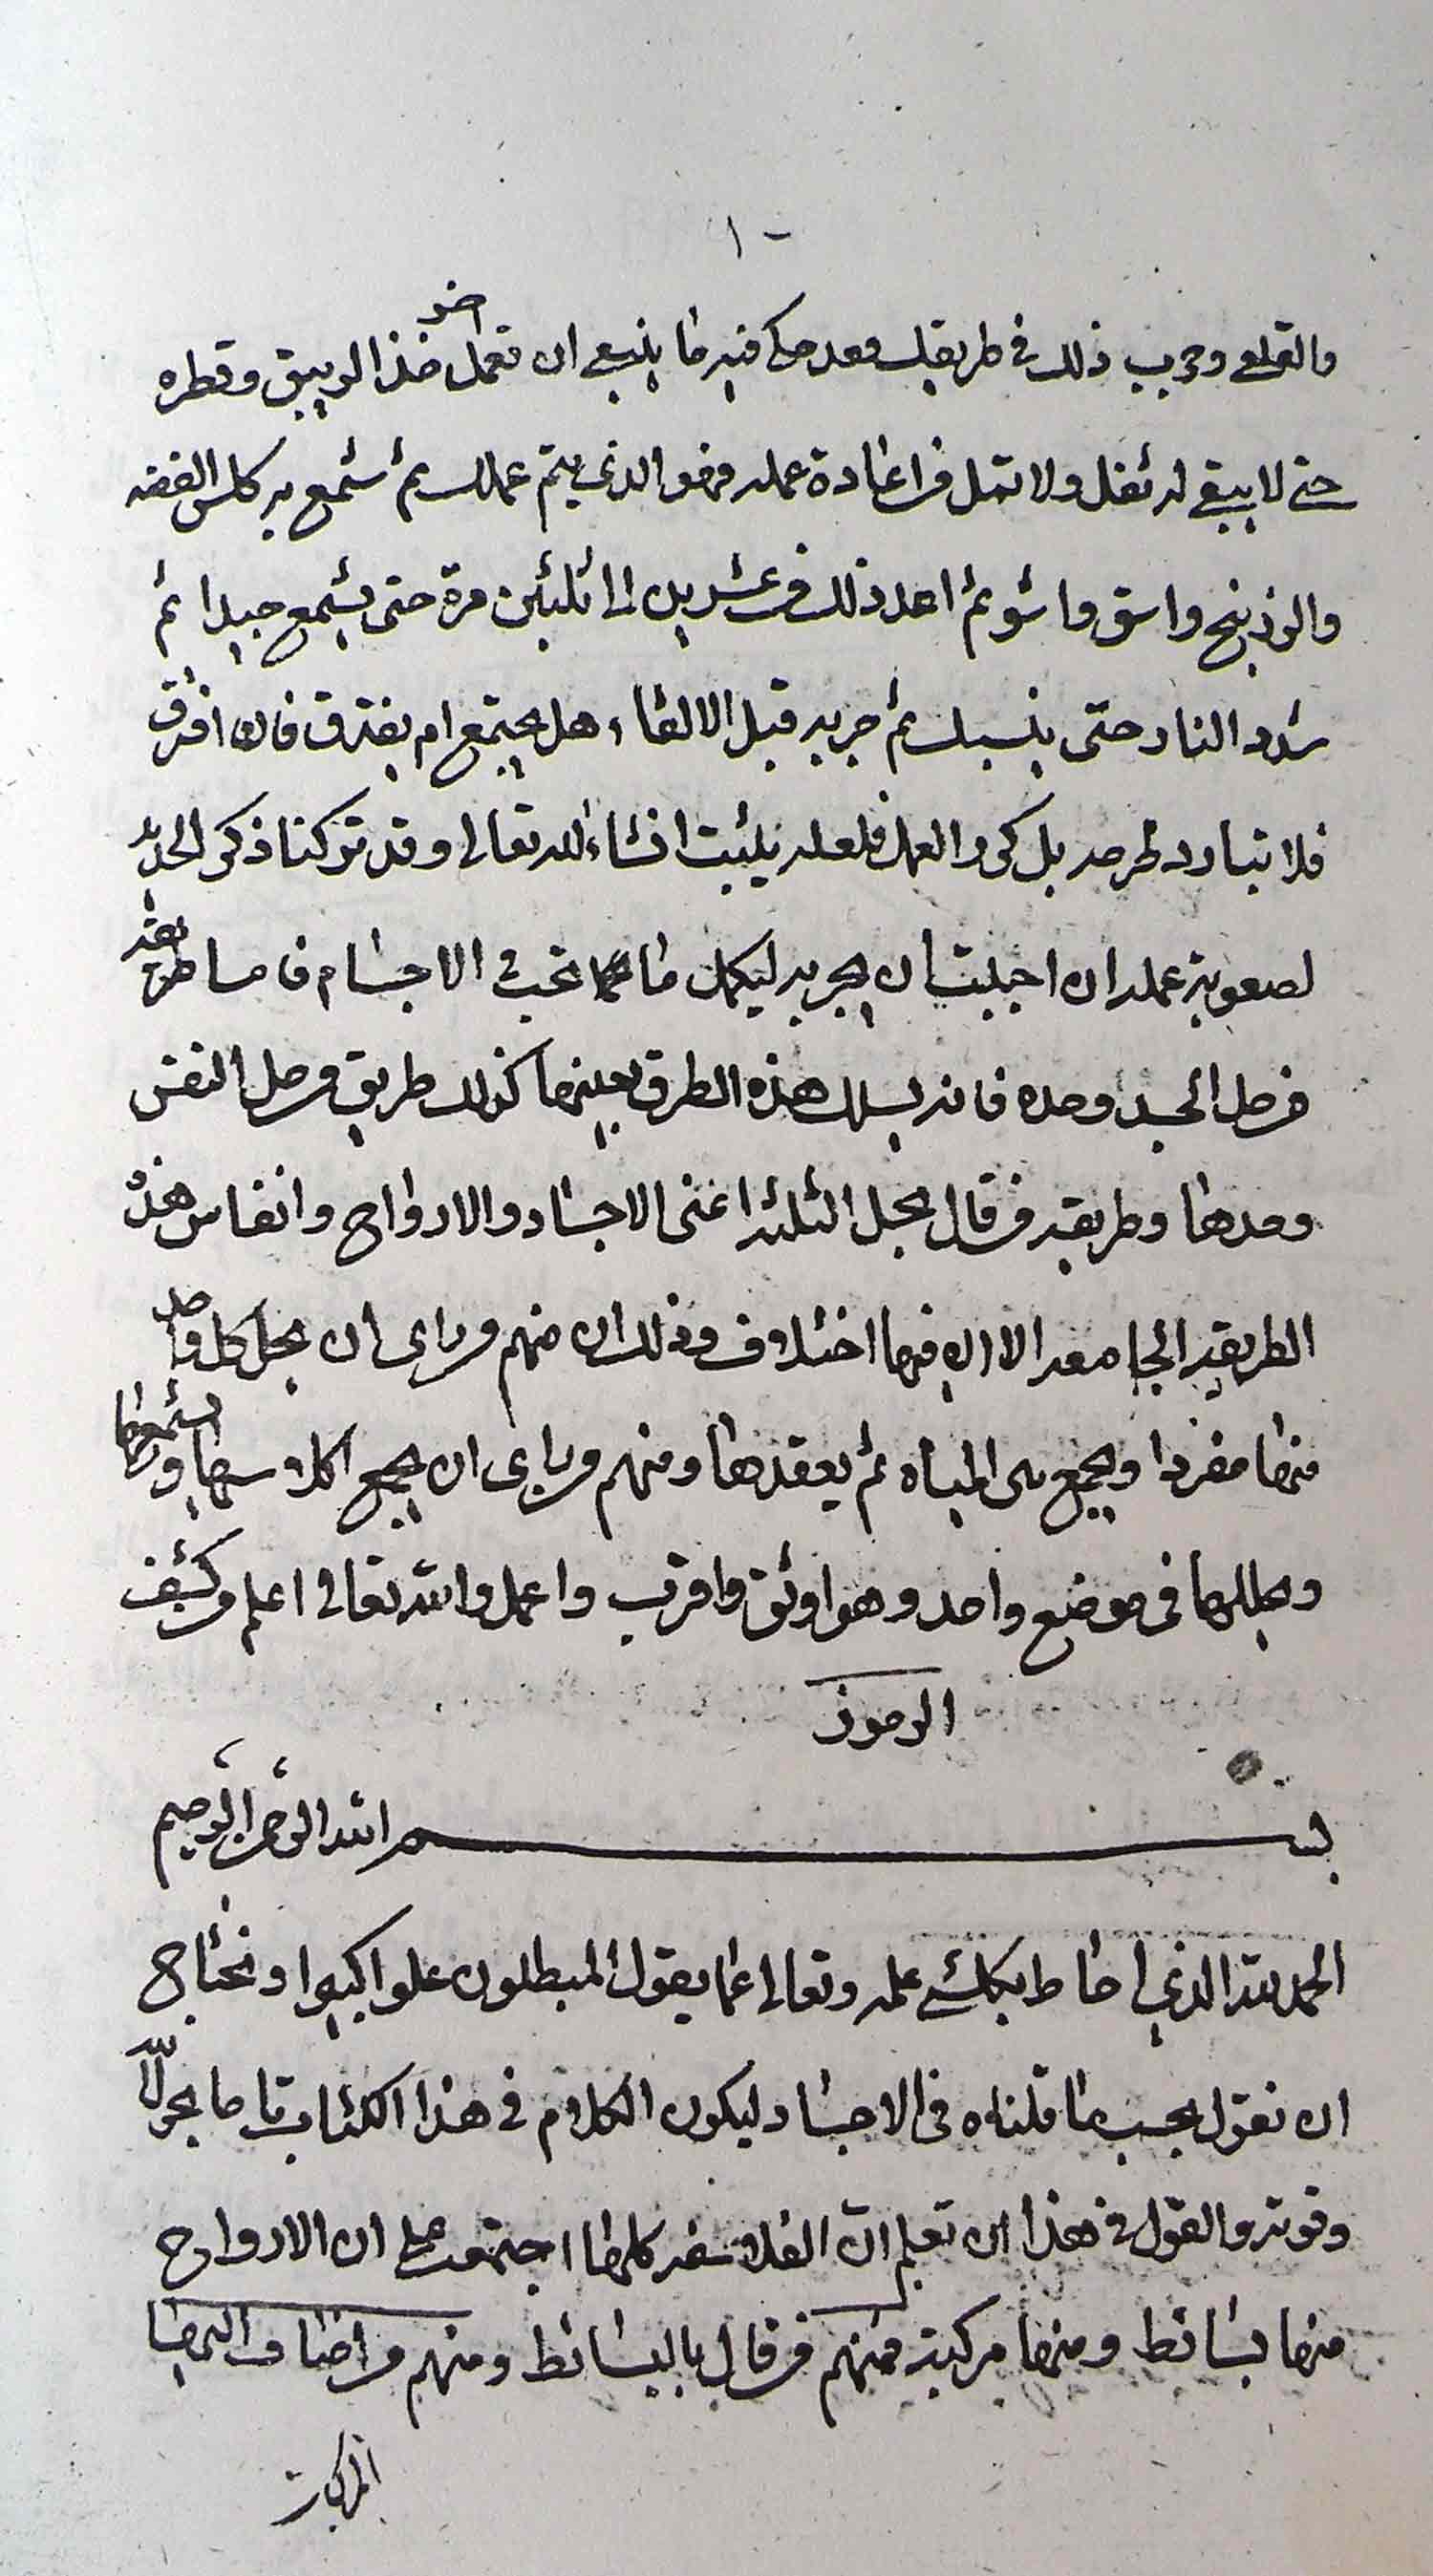 ١٠
والقلعى وجرب ذلك فى طريقك وحدك فيه ما ينبغى ان تعمل خذ الزيبق وقطره
حتى لا يبقى له ثفل ولا تمل من اعادة عمله فهو الذى يتم عملك ثم شمع به كلس الفضه
والزرنيخ واسق واشو ثم اعد ذلك من عشرين الى ثلثين مرة حتى يشمع جيدا ثم
شدد النار حتى ينسبك ثم جربه قبل الالقاء هل يجتمع ام يفترق فان افترق
فلا تبادر لطرحه بل كرر العمل فلعله يثبت انشاء الله تعالى وقد تركنا ذكر الحديد
لصعوبة عمله ان احببت ان تجربه ليكمل ما نحب فى الاجسام فاما طريقة
من حل الجسد وحده فانه يسلك هذه الطرق بعينها كذلك طريق من حل النفس
وحدها وطريقة من قال بحل الثلثه اعنى الاجساد والارواح وانفاس هذه
الطريقه الجامعه الا ان فيها اختلاف وذلك ان منهم من راى ان يحل كل واحد
منها مفردا ويجمع بين المياه ثم يعقدها ومنهم من راى ان يجمع اكلاسها ويشمعها
ويحللها فى موضع واحد وهو اوثق واقرب واعمل والله تعالى اعلم وكشف
الرموز
بسم الله الرحمن الرحيم
الحمد لله الذى احاط بكل شى علمه وتعالى عما يقول المبطلون علوا كبيرا ونحتاج
ان نقول بحسب ما قلناه فى الاجساد ليكون الكلام فى هذا الكتاب تاما بحول الله
وقوته والقول فى هذا ان تعلم ان الفلاسفه كلها اجتمعت على ان الارواح
منها بسائط ومنها مركبة فمنهم من قال بالبسائط ومنهم من اضاف اليها
المركبات